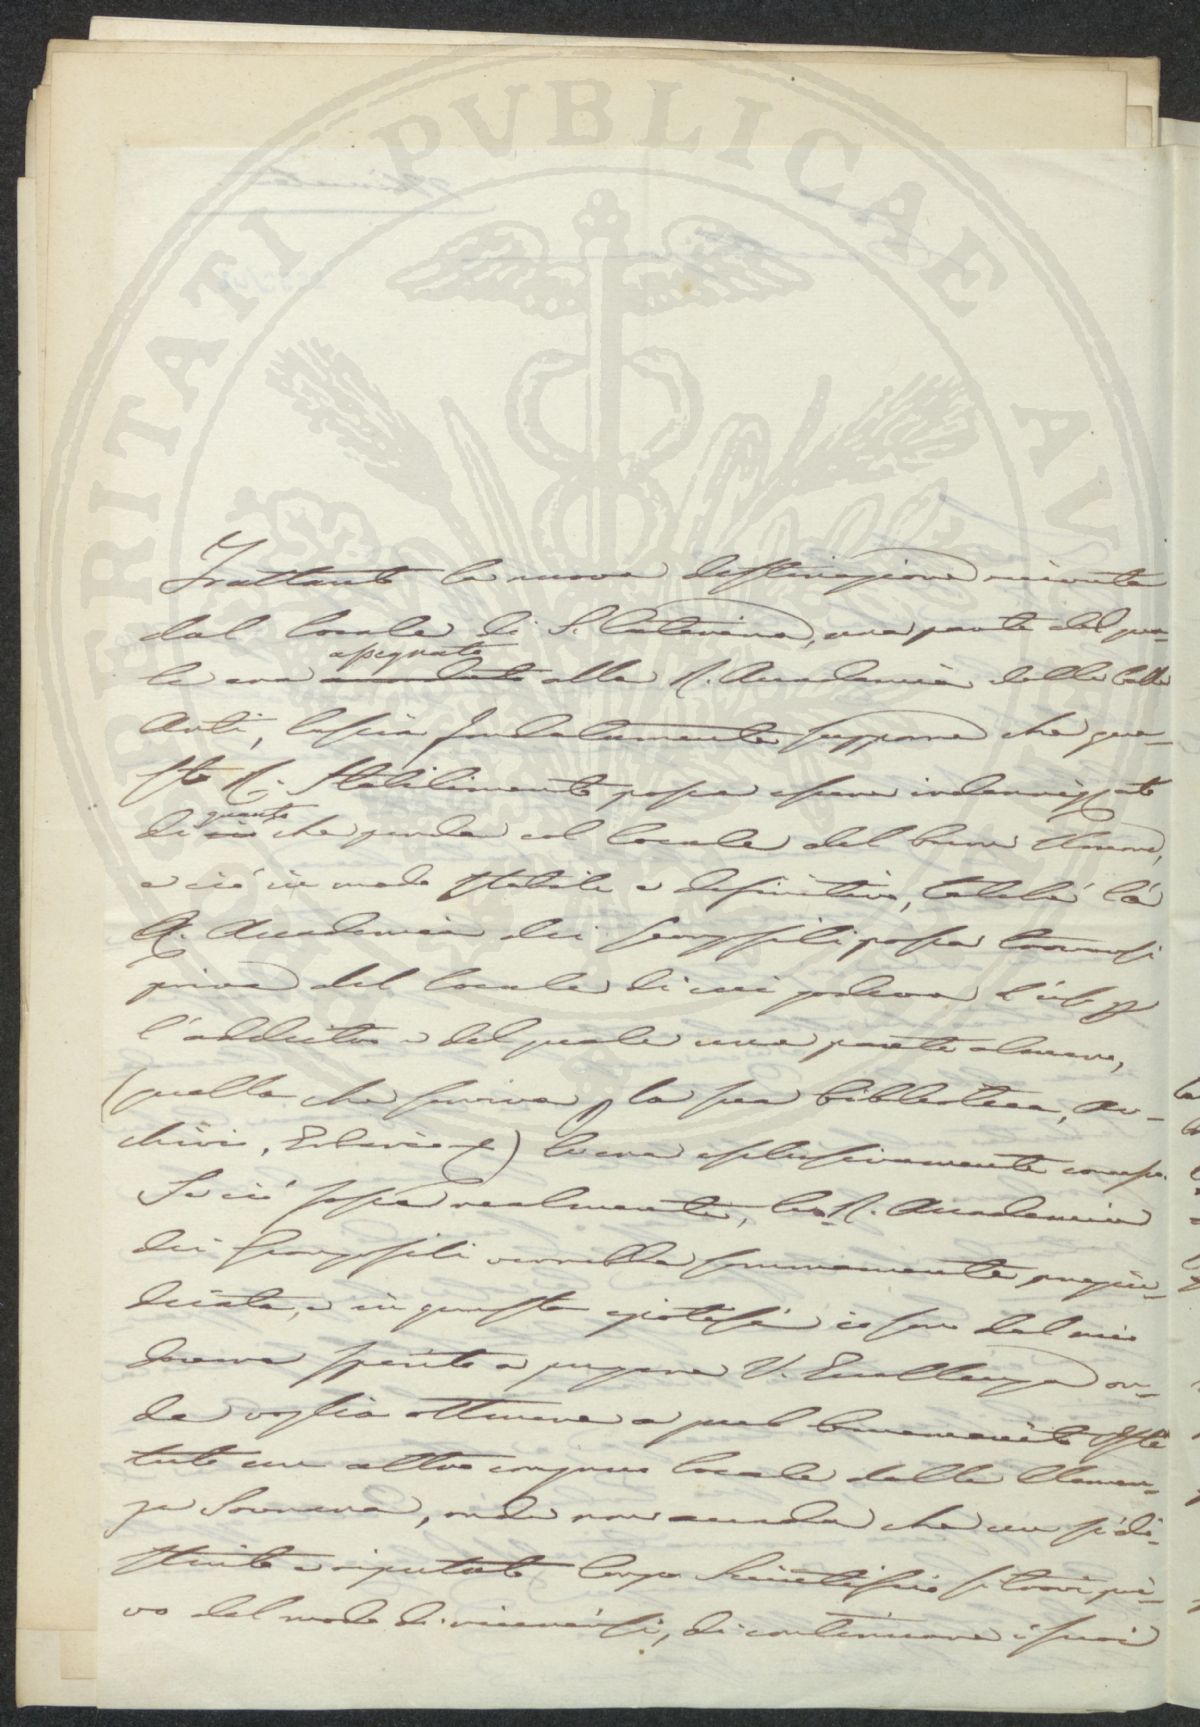 PROSPERITATI PVBLICAE AV
Trattanto la nuova destinazione ricevuta
dal locale di S. Caterina, una parte del qua-
assegnata
le era accordata alla R. Accademia delle belle
Arti, lascia fondatamente supporre che que-
sto R. Stabilimento possa essere indennizzato
quanto
di ciò che perde col locale del buon Umore,
e ciò in modo stabile e definitivo, talché la
R. Accademia dei Georgofili possa trovarsi
priva del locale di cui godeva
e del quale una parte almeno,
(quella che serviva p la sua biblioteca, Ar-
chivio, Erbario) le era esclusivamente
Se ciò fosse realmente, la R. Accademia
dei Georgofili verrebbe sommamente pregiu-
dicata, e in questa ipotesi io son del mio
dovere spinto a pregare V. Eccellenza on-
de voglia ottenere a quel benemerito Isti-
tuto un altro congruo locale dalla Clemen-
za Sovrana, onde non accada che un sì di-
stinto e riputato Corpo Scientifico si trovi pri-
vo del modo di riunirsi, di continuare i suoi